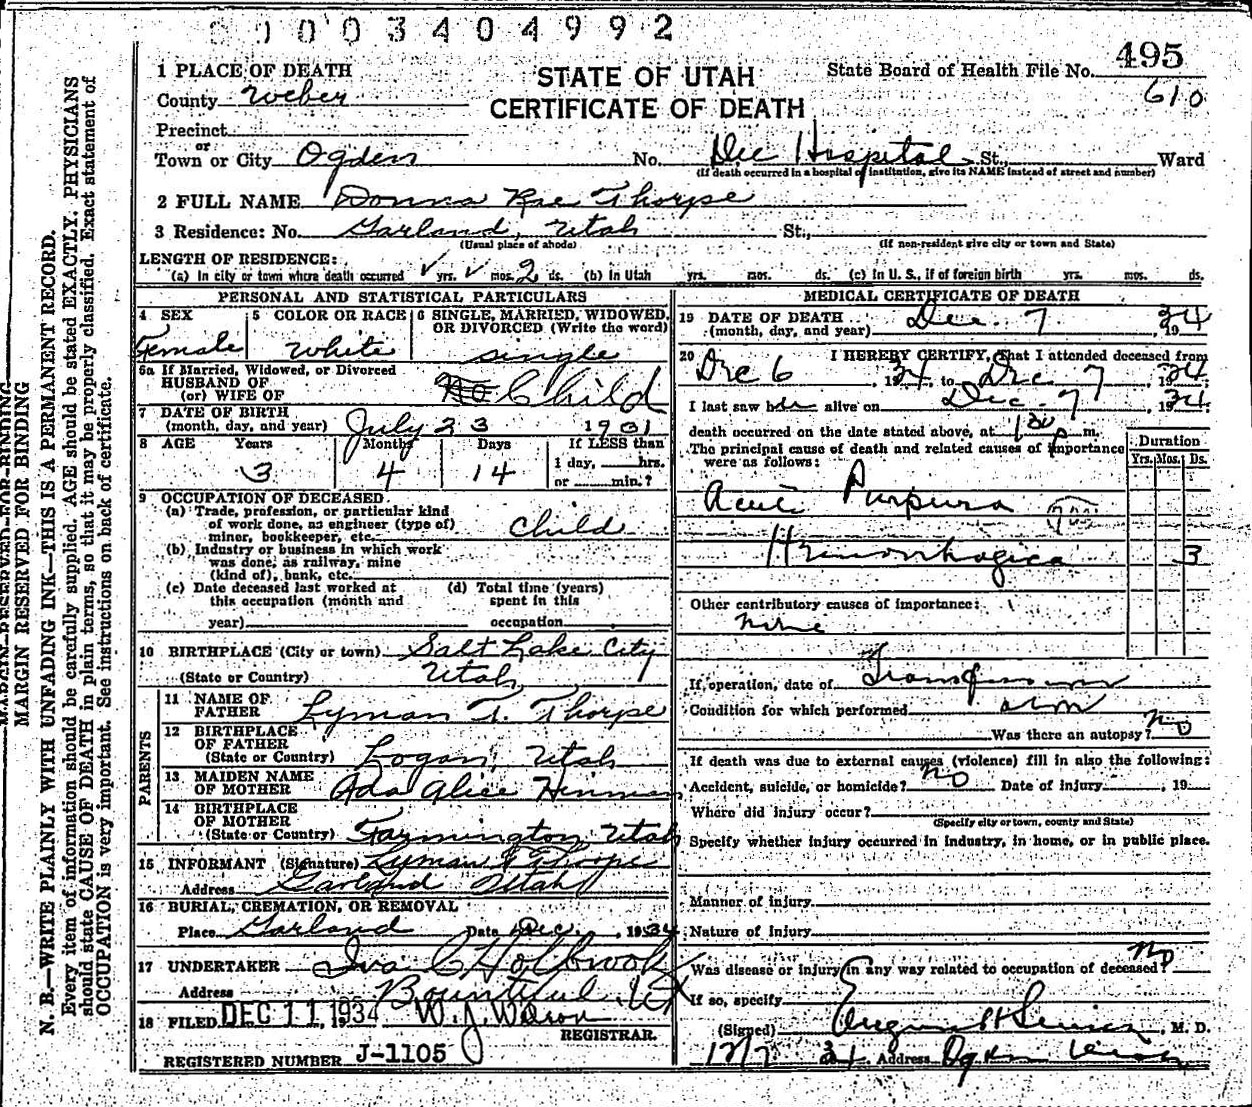 0003404992
495
1 PLACE OF DEATH
STATE OF UTAH
State Board of Health File No.
610
County Weber
CERTIFICATE OF DEATH
Precinct
or
Town or City Ogden No. Dee Hospital St., Ward
(If death occurred in a hospital or institution, give its NAME instead of street and number)
2 FULL NAME Donna Rae Thorpe
3 Residence: No. Garland, Utah St.,
(Usual place of abode) (If non-resident give city or town and State)
LENGTH OF RESIDENCE:
(a) In city or town where death occurred yrs. mos. 2 ds. (b) In Utah yrs. mos. ds. (c) In U. S., if of foreign birth yrs. mos. ds.
PERSONAL AND STATISTICAL PARTICULARS
4 SEX 5 COLOR OR RACE 6 SINGLE, MARRIED, WIDOWED, OR DIVORCED (Write the word)
Female White single
6a If Married, Widowed, or Divorced
HUSBAND OF
(or) WIFE OF Child
7 DATE OF BIRTH
(month, day, and year) July 23 1931
8 AGE Years Months Days If LESS than
3 4 14 1 day, hrs.
or min.?
9 OCCUPATION OF DECEASED
(a) Trade, profession, or particular kind
of work done, as engineer (type of)
miner, bookkeeper, etc. Child
(b) Industry or business in which work
was done, as railway, mine
(kind of), bank, etc.
(c) Date deceased last worked at (d) Total time (years)
this occupation (month and spent in this
year) occupation
10 BIRTHPLACE (City or town) Salt Lake City
(State or Country) Utah
PARENTS
11 NAME OF
FATHER Lyman T. Thorpe
12 BIRTHPLACE
OF FATHER
(State or Country) Logan, Utah
13 MAIDEN NAME
OF MOTHER Ada Alice Hinman
14 BIRTHPLACE
OF MOTHER
(State or Country) Farmington, Utah
15 INFORMANT (Signature) Lyman T Thorpe
Address Garland Utah
16 BURIAL, CREMATION, OR REMOVAL
Place Garland Date Dec. , 1934
17 UNDERTAKER Iva C Holbrook
Address Bountiful Ut
18 FILED DEC 11 1934 W. J. Wilson
REGISTRAR.
REGISTERED NUMBER J-1105
MEDICAL CERTIFICATE OF DEATH
19 DATE OF DEATH
(month, day, and year) Dec. 7 , 1934
20 I HEREBY CERTIFY, That I attended deceased from
Dec 6 , 1934, to Dec 7 1934
I last saw her alive on Dec. 7 , 1934
death occurred on the date stated above, at p m.
The principal cause of death and related causes of importance
were as follows:
Duration
Yrs. Mos. Ds.
Acute Purpura
Hemorrhagica 3
Other contributory causes of importance:
none
If operation, date of Transfusion
Condition for which performed
Was there an autopsy? No
If death was due to external causes (violence) fill in also the following:
Accident, suicide, or homicide? No Date of injury , 19
Where did injury occur?
(Specify city or town, county and State)
Specify whether injury occurred in industry, in home, or in public place.
Manner of injury
Nature of Injury
Was disease or injury in any way related to occupation of deceased? No
If so, specify
(Signed) M. D.
12/7 34 Address Ogden Utah
MARGIN RESERVED FOR BINDING
N. B.—WRITE PLAINLY WITH UNFADING INK—THIS IS A PERMANENT RECORD.
Every item of information should be carefully supplied. AGE should be stated EXACTLY. PHYSICIANS
should state CAUSE OF DEATH in plain terms, so that it may be properly classified. Exact statement of
OCCUPATION is very important. See instructions on back of certificate.